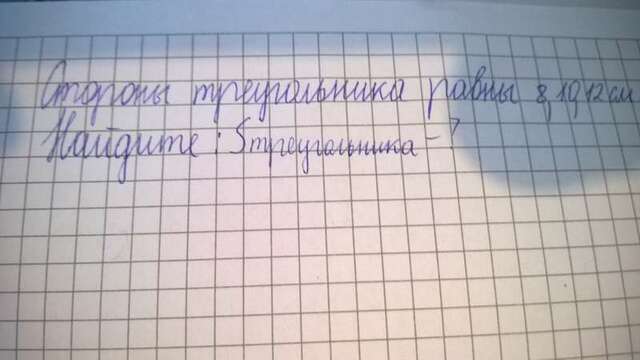 Стороны треугольника равны 8, 10, 12 см
Найдите: S треугольника - ?